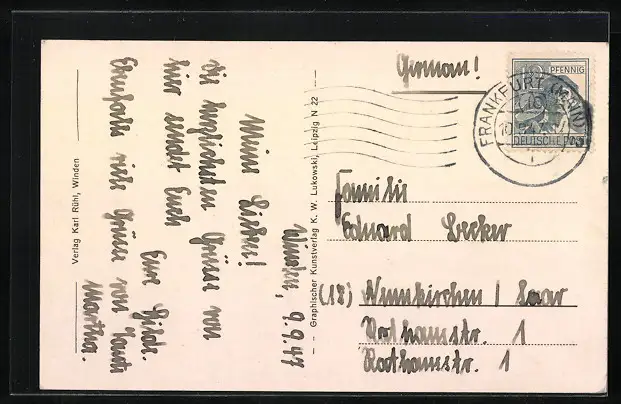 German!
12 PFENNIG
FRANKFURT (MAIN)
DEUTSCHE POST
Winden, 9.9.47
Meine Lieben!
Die herzlichsten Grüsse von
hier sendet Euch
Eure Hilde.
Ebenfalls viele Grüsse von Tante
Martha.
Familie
Eduard Becker
(18) Neunkirchen / Saar
Rathausstr. 1
Rathausstr. 1
Verlag Karl Rühl, Winden
Graphischer Kunstverlag K. W. Lukowski, Leipzig N 22